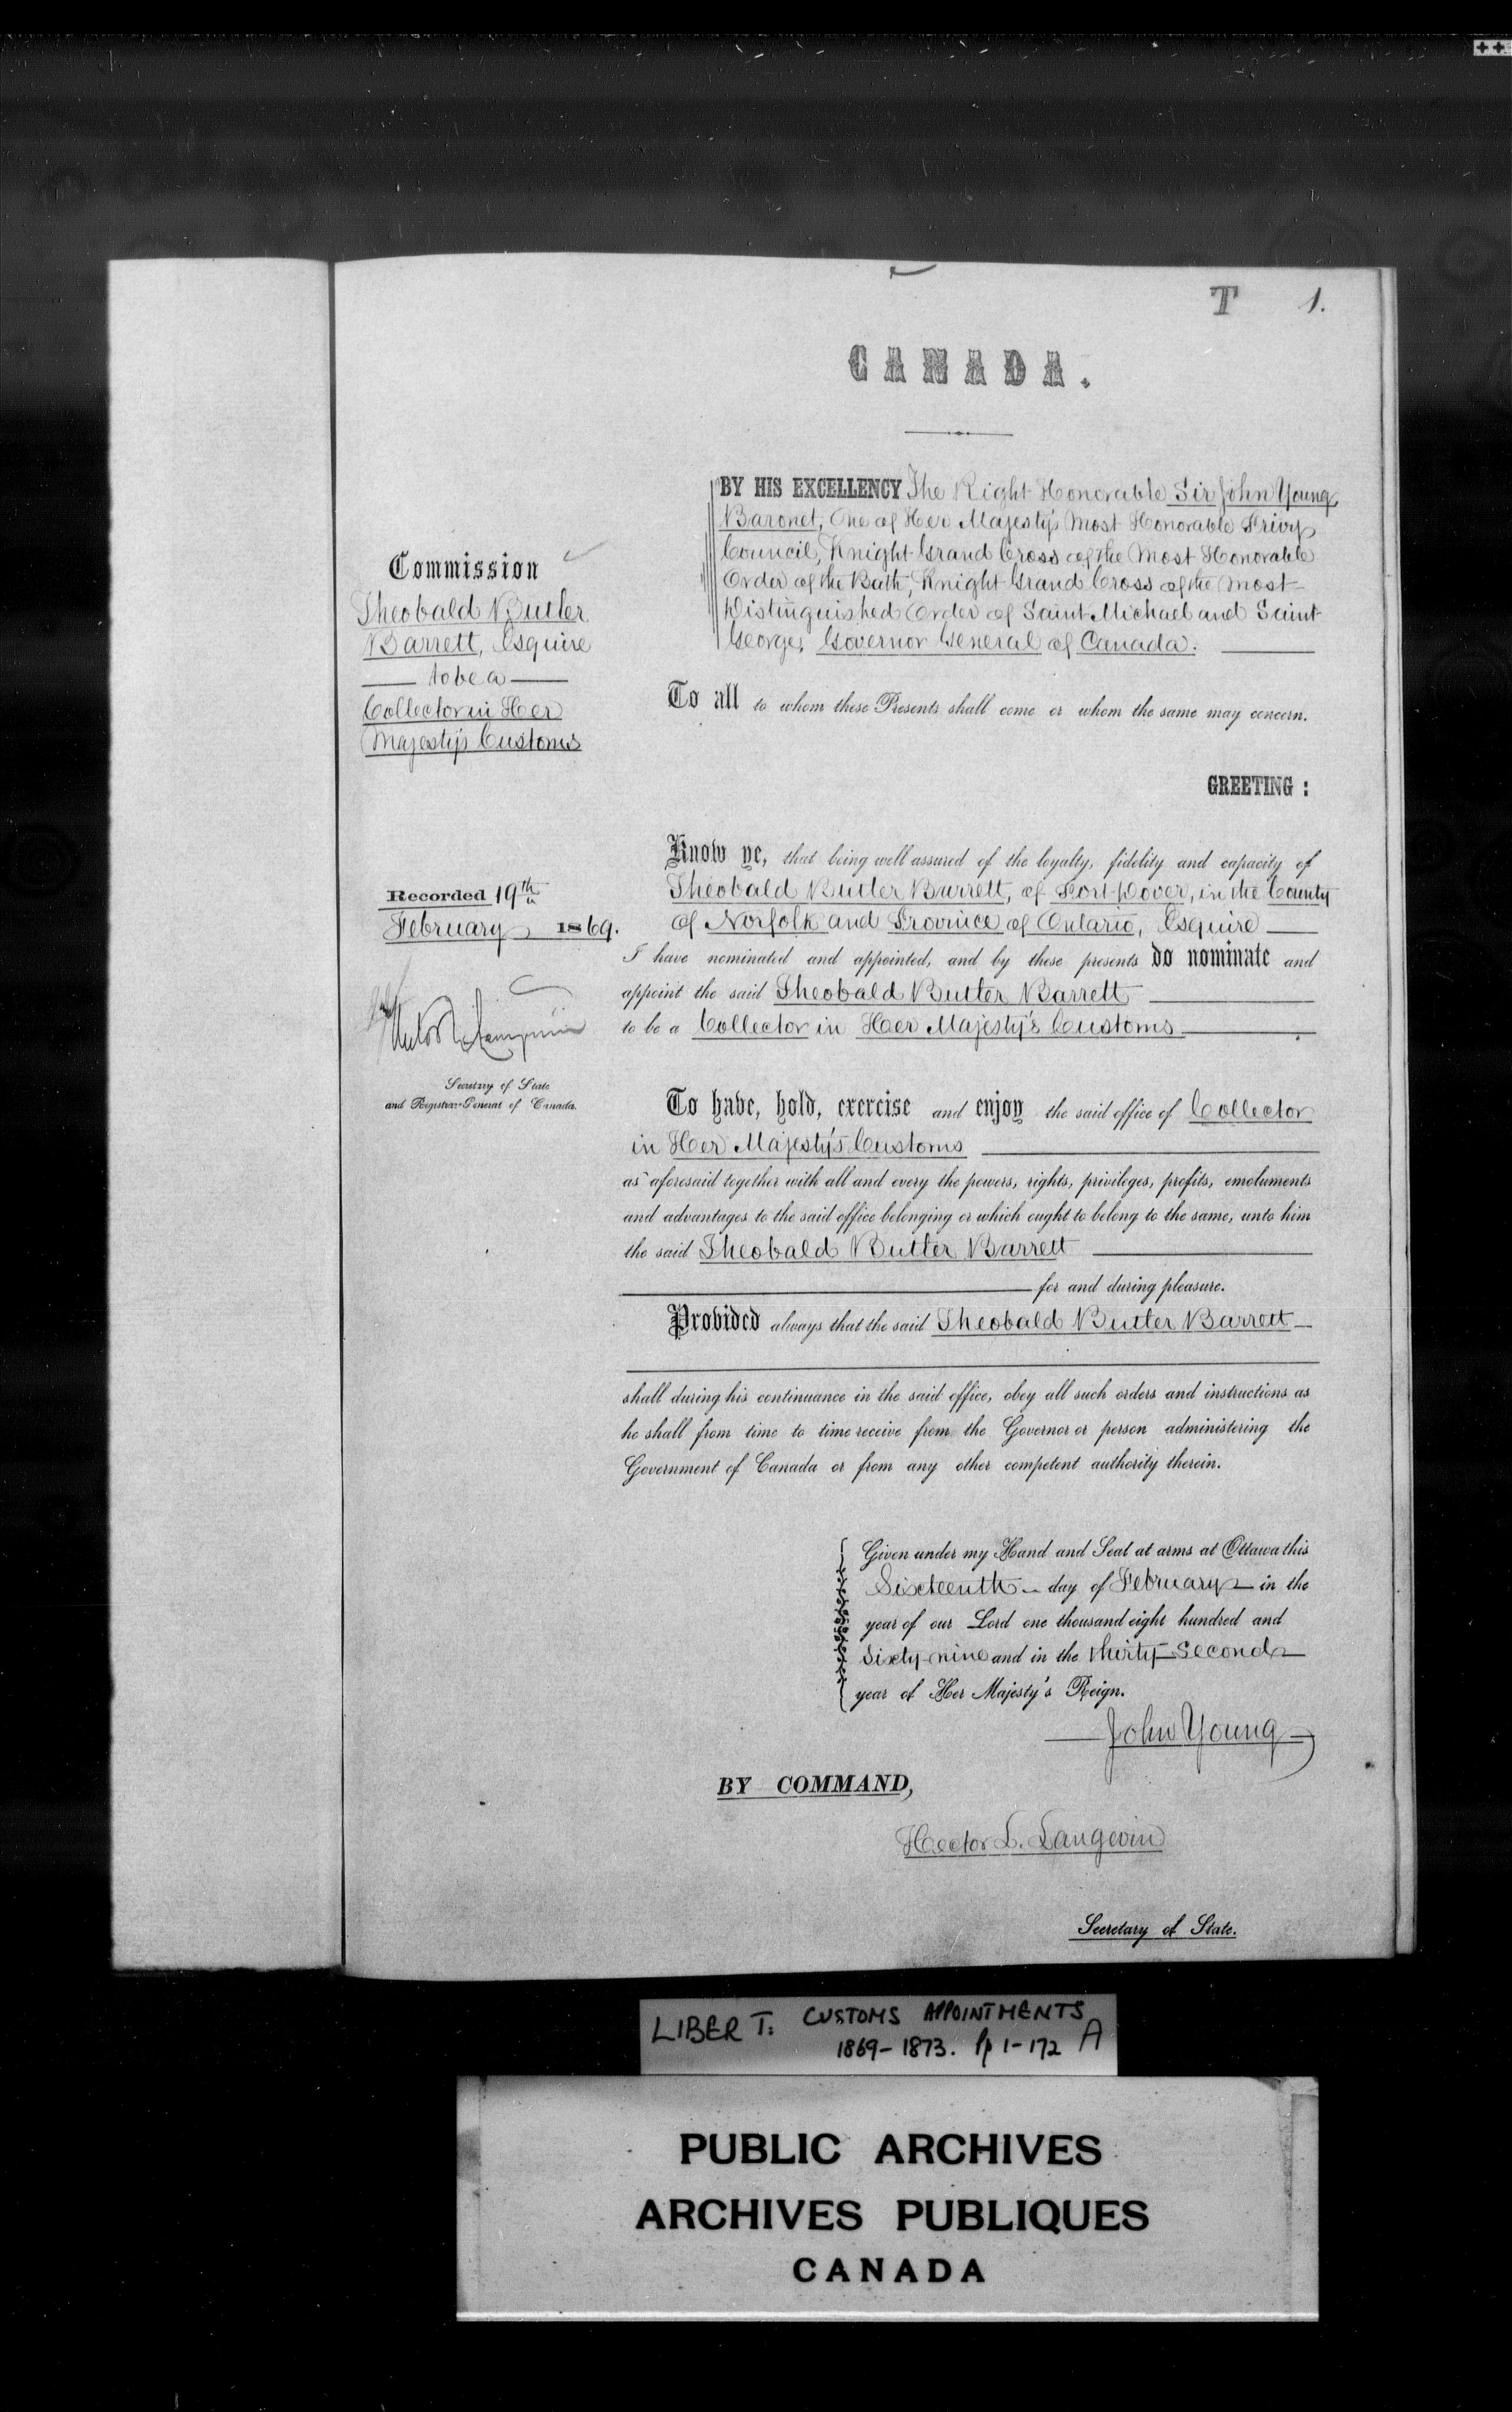 T 1.
CANADA.
BY HIS EXCELLENCY The Right Honorable Sir John Young,
Baronet, One of Her Majesty's Most Honorable Privy
Council, Knight Grand Cross of the Most Honorable
Order of the Bath, Knight Grand Cross of the Most
Distinguished Order of Saint Michael and Saint
George, Governor General of Canada.
Commission
Theobald Butler
Barrett, Esquire
to be a
Collector in Her
Majesty's Customs
To all to whom these Presents shall come or whom the same may concern.
GREETING :
Recorded 19th
February 1869.
Secretary of State
and Registrar General of Canada.
Know ye, that being well assured of the loyalty, fidelity and capacity of
Theobald Butler Barrett, of Port Dover, in the County
of Norfolk and Province of Ontario, Esquire
I have nominated and appointed, and by these presents do nominate and
appoint the said Theobald Butler Barrett
to be a Collector in Her Majesty's Customs
To have, hold, exercise and enjoy the said office of Collector
in Her Majesty's Customs
as aforesaid together with all and every the powers, rights, privileges, profits, emoluments
and advantages to the said office belonging or which ought to belong to the same, unto him
the said Theobald Butler Barrett
for and during pleasure.
Provided always that the said Theobald Butler Barrett
shall during his continuance in the said office, obey all such orders and instructions as
he shall from time to time receive from the Governor or person administering the
Government of Canada or from any other competent authority therein.
Given under my Hand and Seal at arms at Ottawa this
Sixteenth day of February in the
year of our Lord one thousand eight hundred and
Sixty-nine and in the thirty-second
year of Her Majesty's Reign.
John Young
BY COMMAND,
Hector L. Langevin
Secretary of State.
LIBER T: CUSTOMS APPOINTMENTS
1869-1873. Pp 1-172 A
PUBLIC ARCHIVES
ARCHIVES PUBLIQUES
CANADA